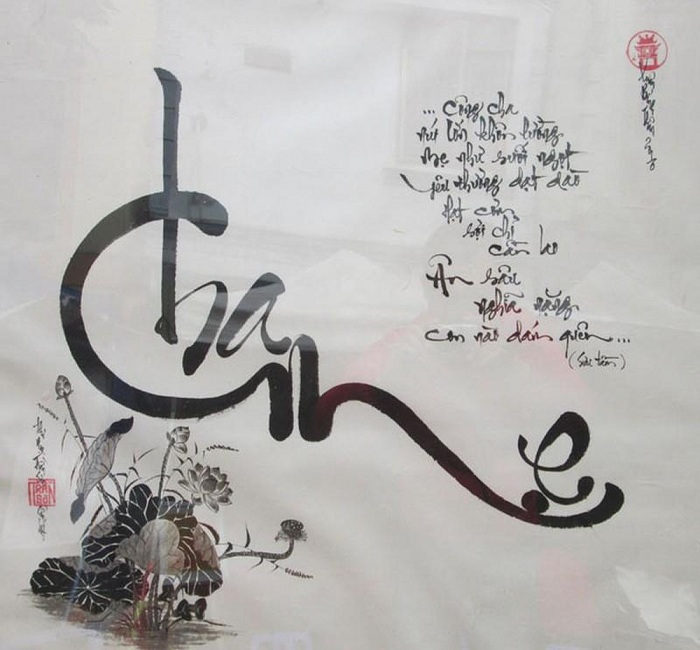 Cha
Mẹ
... Công cha
núi lớn khôn lường
Mẹ như suối ngọt
yêu thương dạt dào
hạt cơm
sợi chỉ
cần lao
Ân sâu
nghĩa nặng
con nào dám quên...
(Sưu tầm)